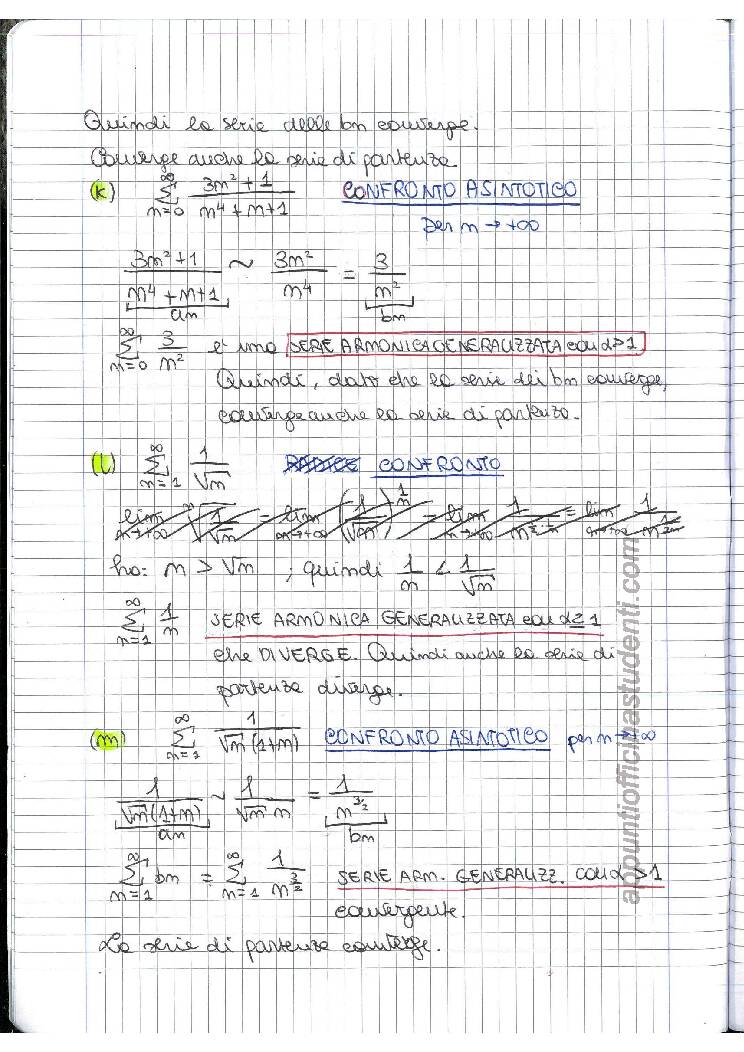 Quindi la serie delle bn converge.
Converge anche la serie di partenza.
(k) ∞∑n=0 (3n²+1)/(n⁴+n+1) CONFRONTO ASINTOTICO
per n → +∞
(3n²+1)/(n⁴+n+1) ~ 3n²/n⁴ = 3/n²
an bn
∞∑n=0 3/n² è una SERIE ARMONICA GENERALIZZATA con α>1
Quindi, dato che la serie dei bn converge,
converge anche la serie di partenza.
(l) ∞∑n=1 1/√n RADICE CONFRONTO
ho: n > √n ; quindi 1/n < 1/√n
∞∑n=1 1/n SERIE ARMONICA GENERALIZZATA con α≥1
che DIVERGE. Quindi anche la serie di
partenza diverge.
(m) ∞∑n=1 1/(√n(1+n)) CONFRONTO ASINTOTICO per n→+∞
1/(√n(1+n)) ~ 1/(√n n) = 1/n^(3/2)
an bn
∞∑n=1 bn = ∞∑n=1 1/n^(3/2) SERIE ARM. GENERALIZZ. con α>1
convergente.
La serie di partenza converge.
appuntiofficinastudenti.com